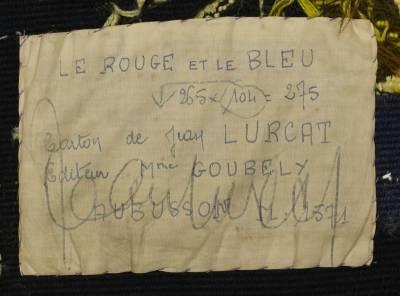 LE ROUGE ET LE BLEU
265 x 104 = 275
Carton de Jean LURCAT
Editeur Mme GOUBELY
AUBUSSON N. 1371